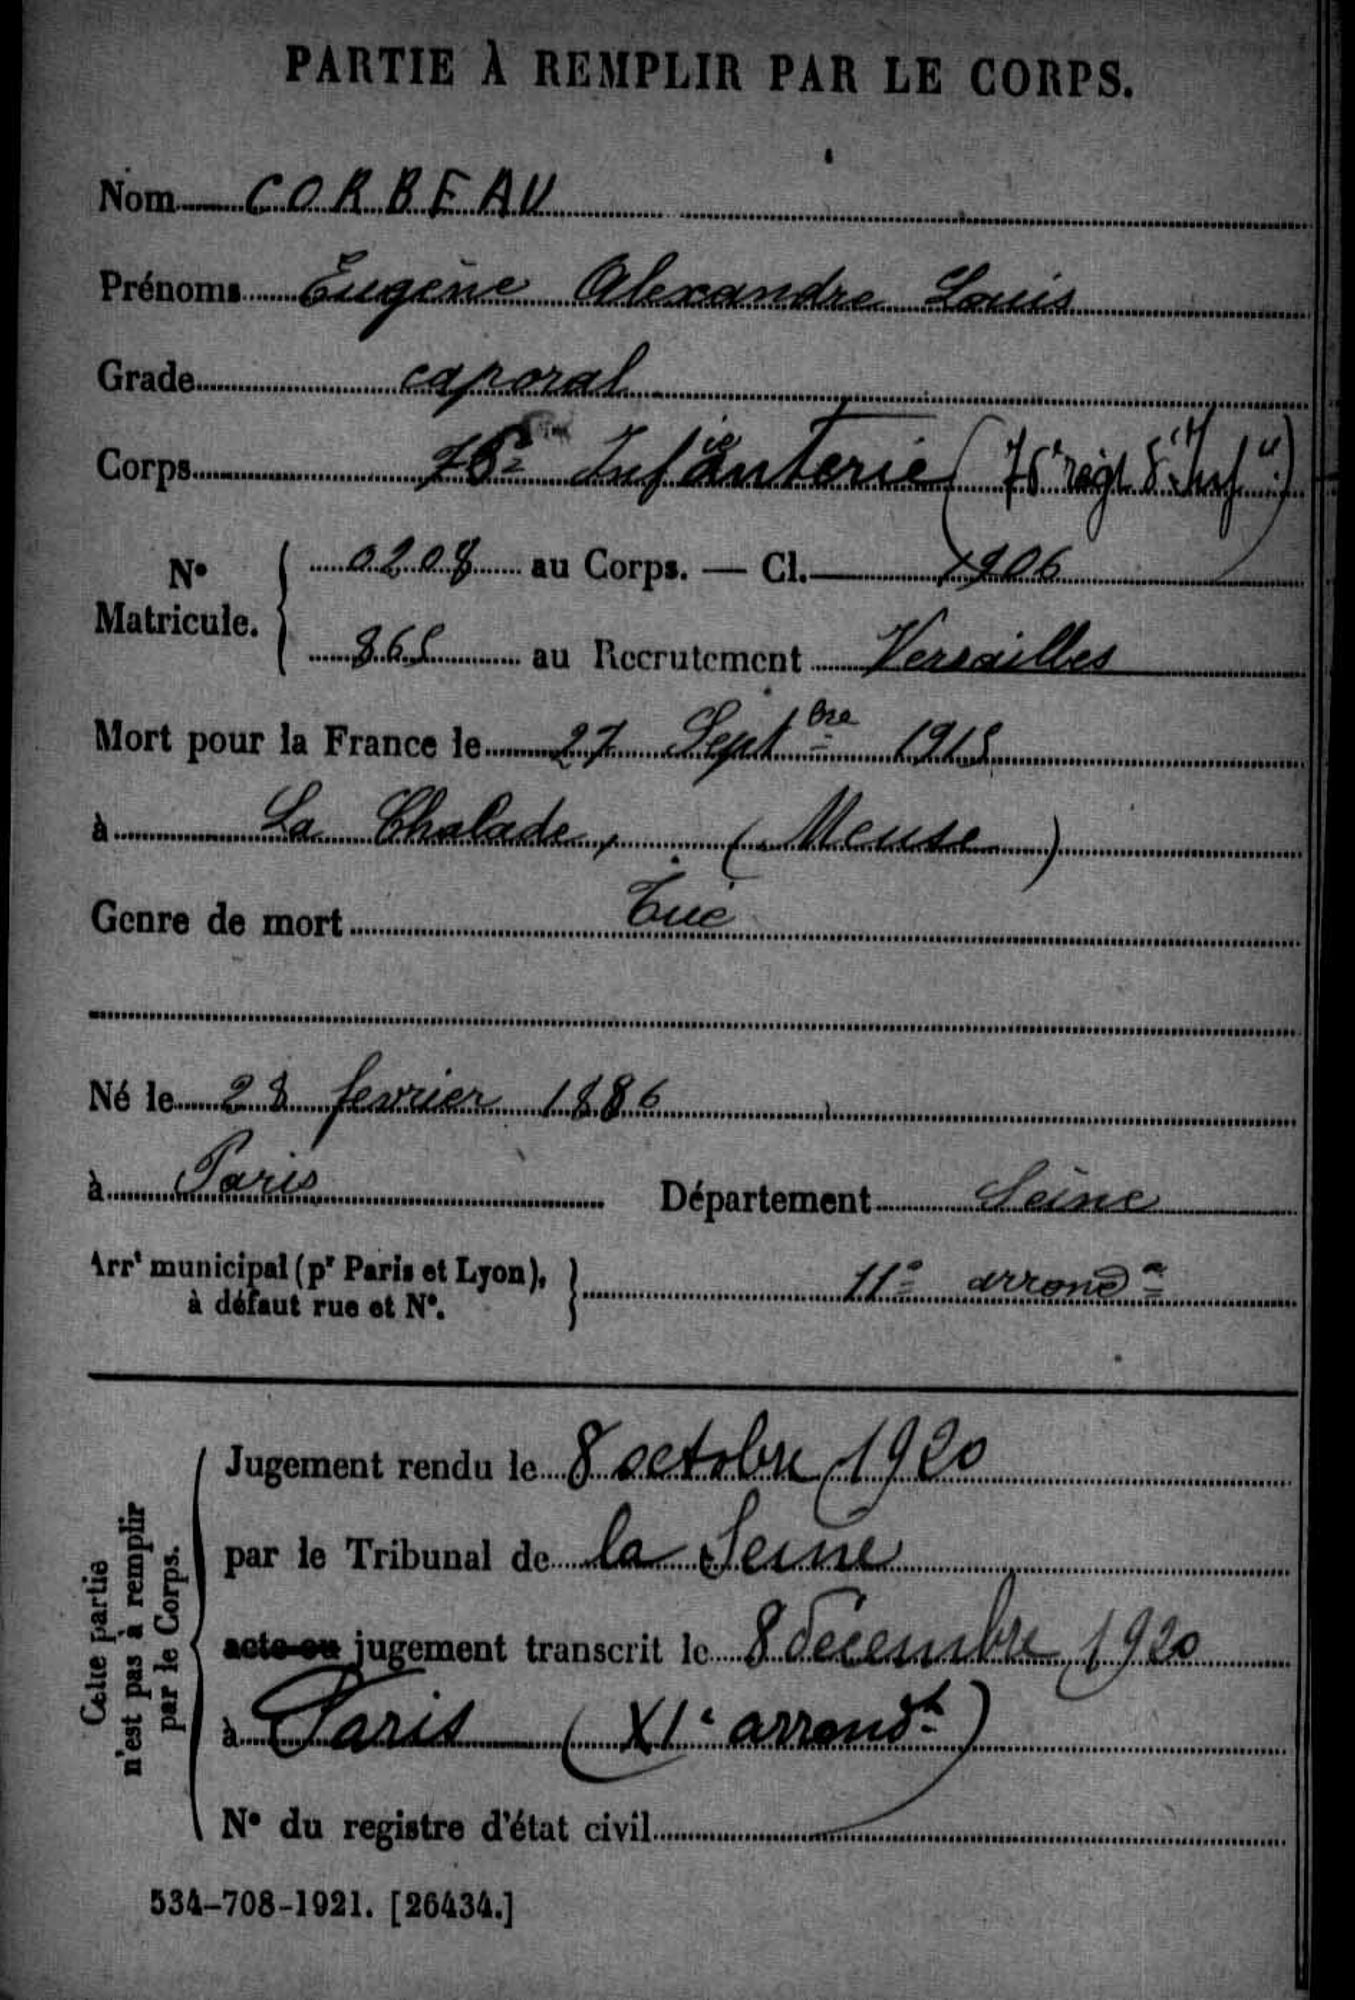 PARTIE À REMPLIR PAR LE CORPS.
Nom CORBEAU
Prénoms Eugène Alexandre Louis
Grade caporal
Corps 76e Infanterie (76e régt d'Infie)
No Matricule. { 0208 au Corps. — Cl. 1906
865 au Recrutement Versailles
Mort pour la France le 27 Septbre 1915
à La Chalade, (Meuse)
Genre de mort Tué
Né le 28 fevrier 1886
à Paris Département Seine
Arrt municipal (pr Paris et Lyon), à défaut rue et No. } 11e arrondt
Cette partie n'est pas à remplir par le Corps.
Jugement rendu le 8 octobre 1920
par le Tribunal de la Seine
acte ou jugement transcrit le 8 décembre 1920
à Paris (XIe arrondt)
No du registre d'état civil
534-708-1921. [26434.]